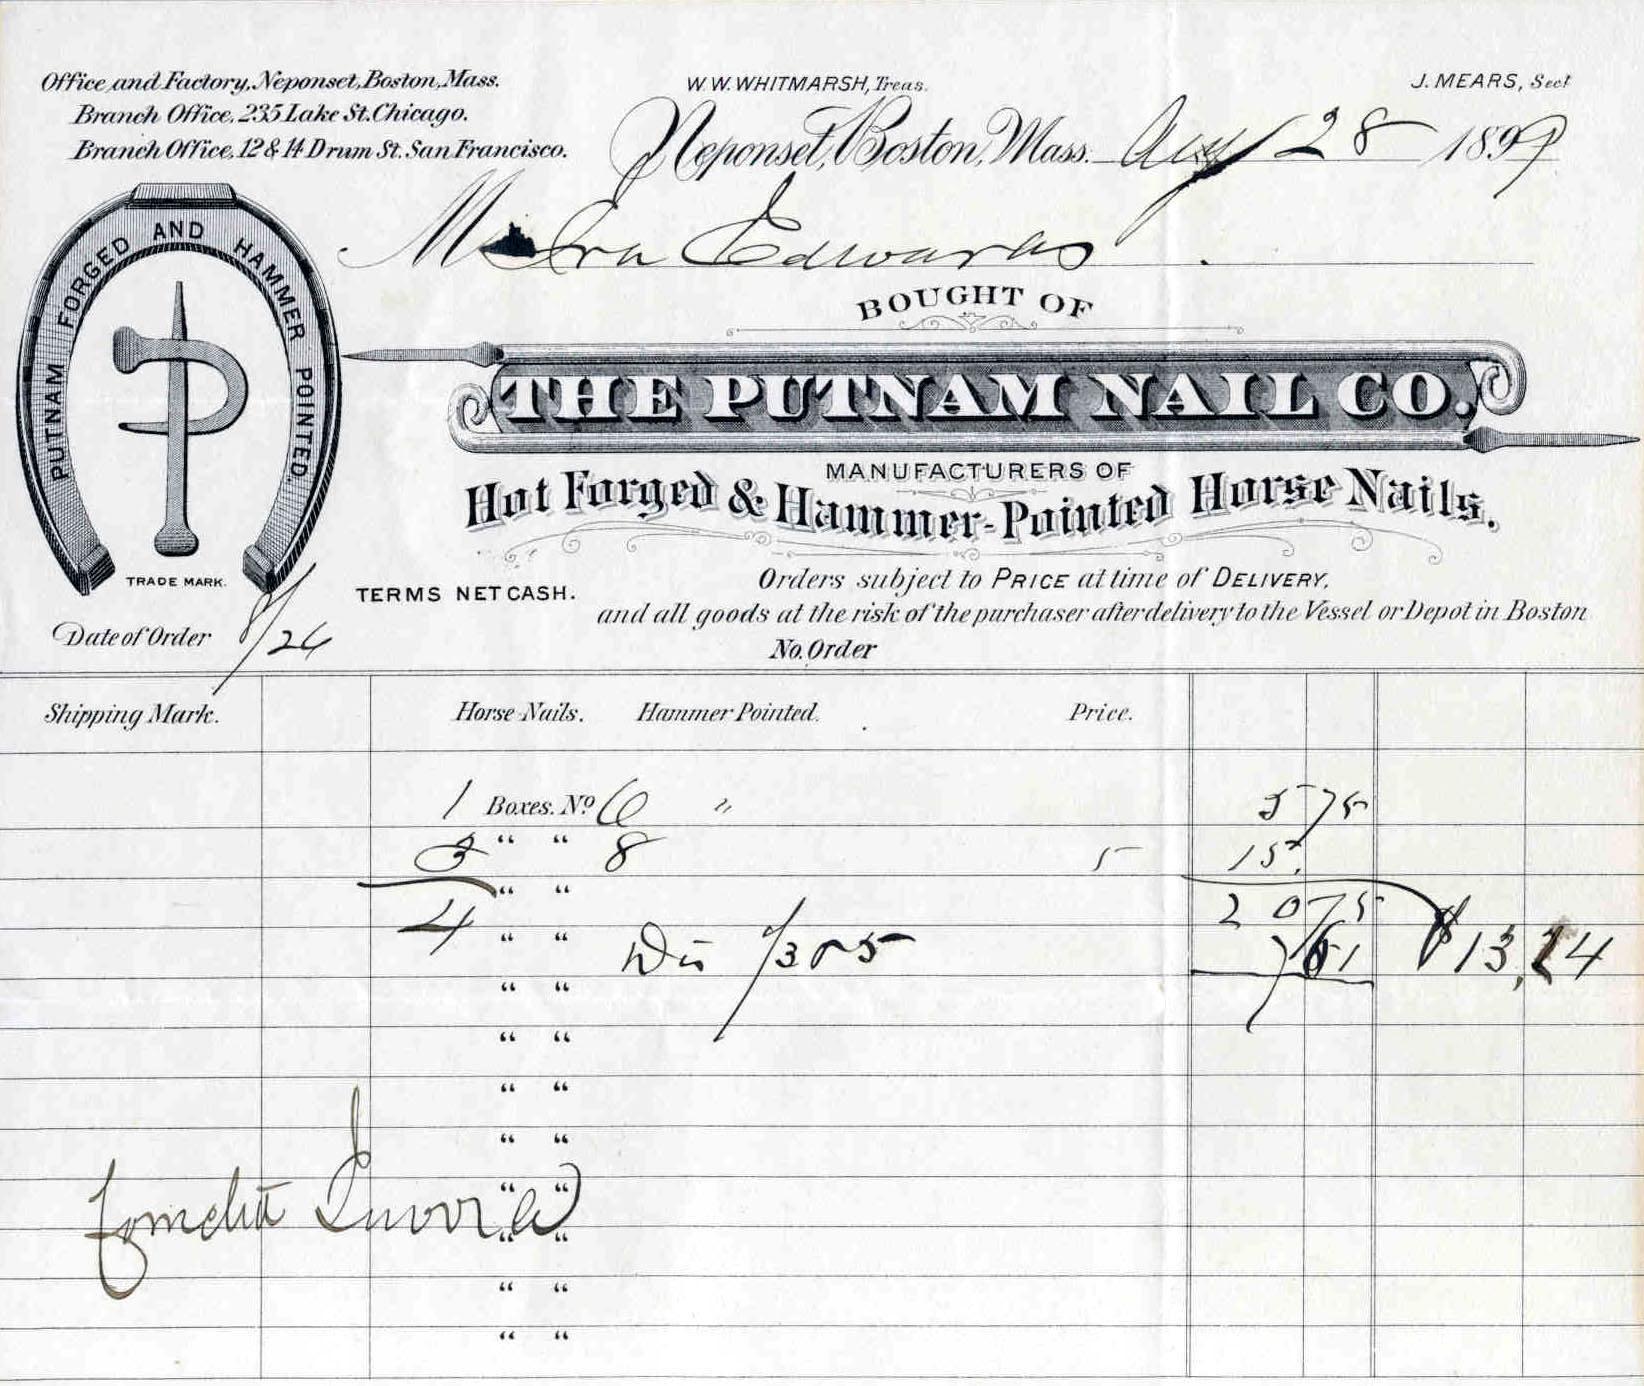 Office and Factory, Neponset, Boston, Mass.
Branch Office, 235 Lake St. Chicago.
Branch Office, 12 & 14 Drum St. San Francisco.
W. W. WHITMARSH, Treas.
J. MEARS, Sect
Neponset, Boston, Mass. Aug 28 1899
M Ira Edwards
BOUGHT OF
THE PUTNAM NAIL CO.
MANUFACTURERS OF
Hot Forged & Hammer-Pointed Horse Nails.
PUTNAM FORGED AND HAMMER POINTED.
TRADE MARK.
TERMS NET CASH.
Orders subject to PRICE at time of DELIVERY,
and all goods at the risk of the purchaser after delivery to the Vessel or Depot in Boston
Date of Order 8/26
No. Order
Shipping Mark. Horse-Nails. Hammer Pointed. Price.
1 Boxes. No 6 " 5 75
3 " " 8 5 15.
" "
4 20 75
" " Dis 1/3 & 5 7 61 $13.24
" "
" "
" "
" "
" "
" "
" "
" "